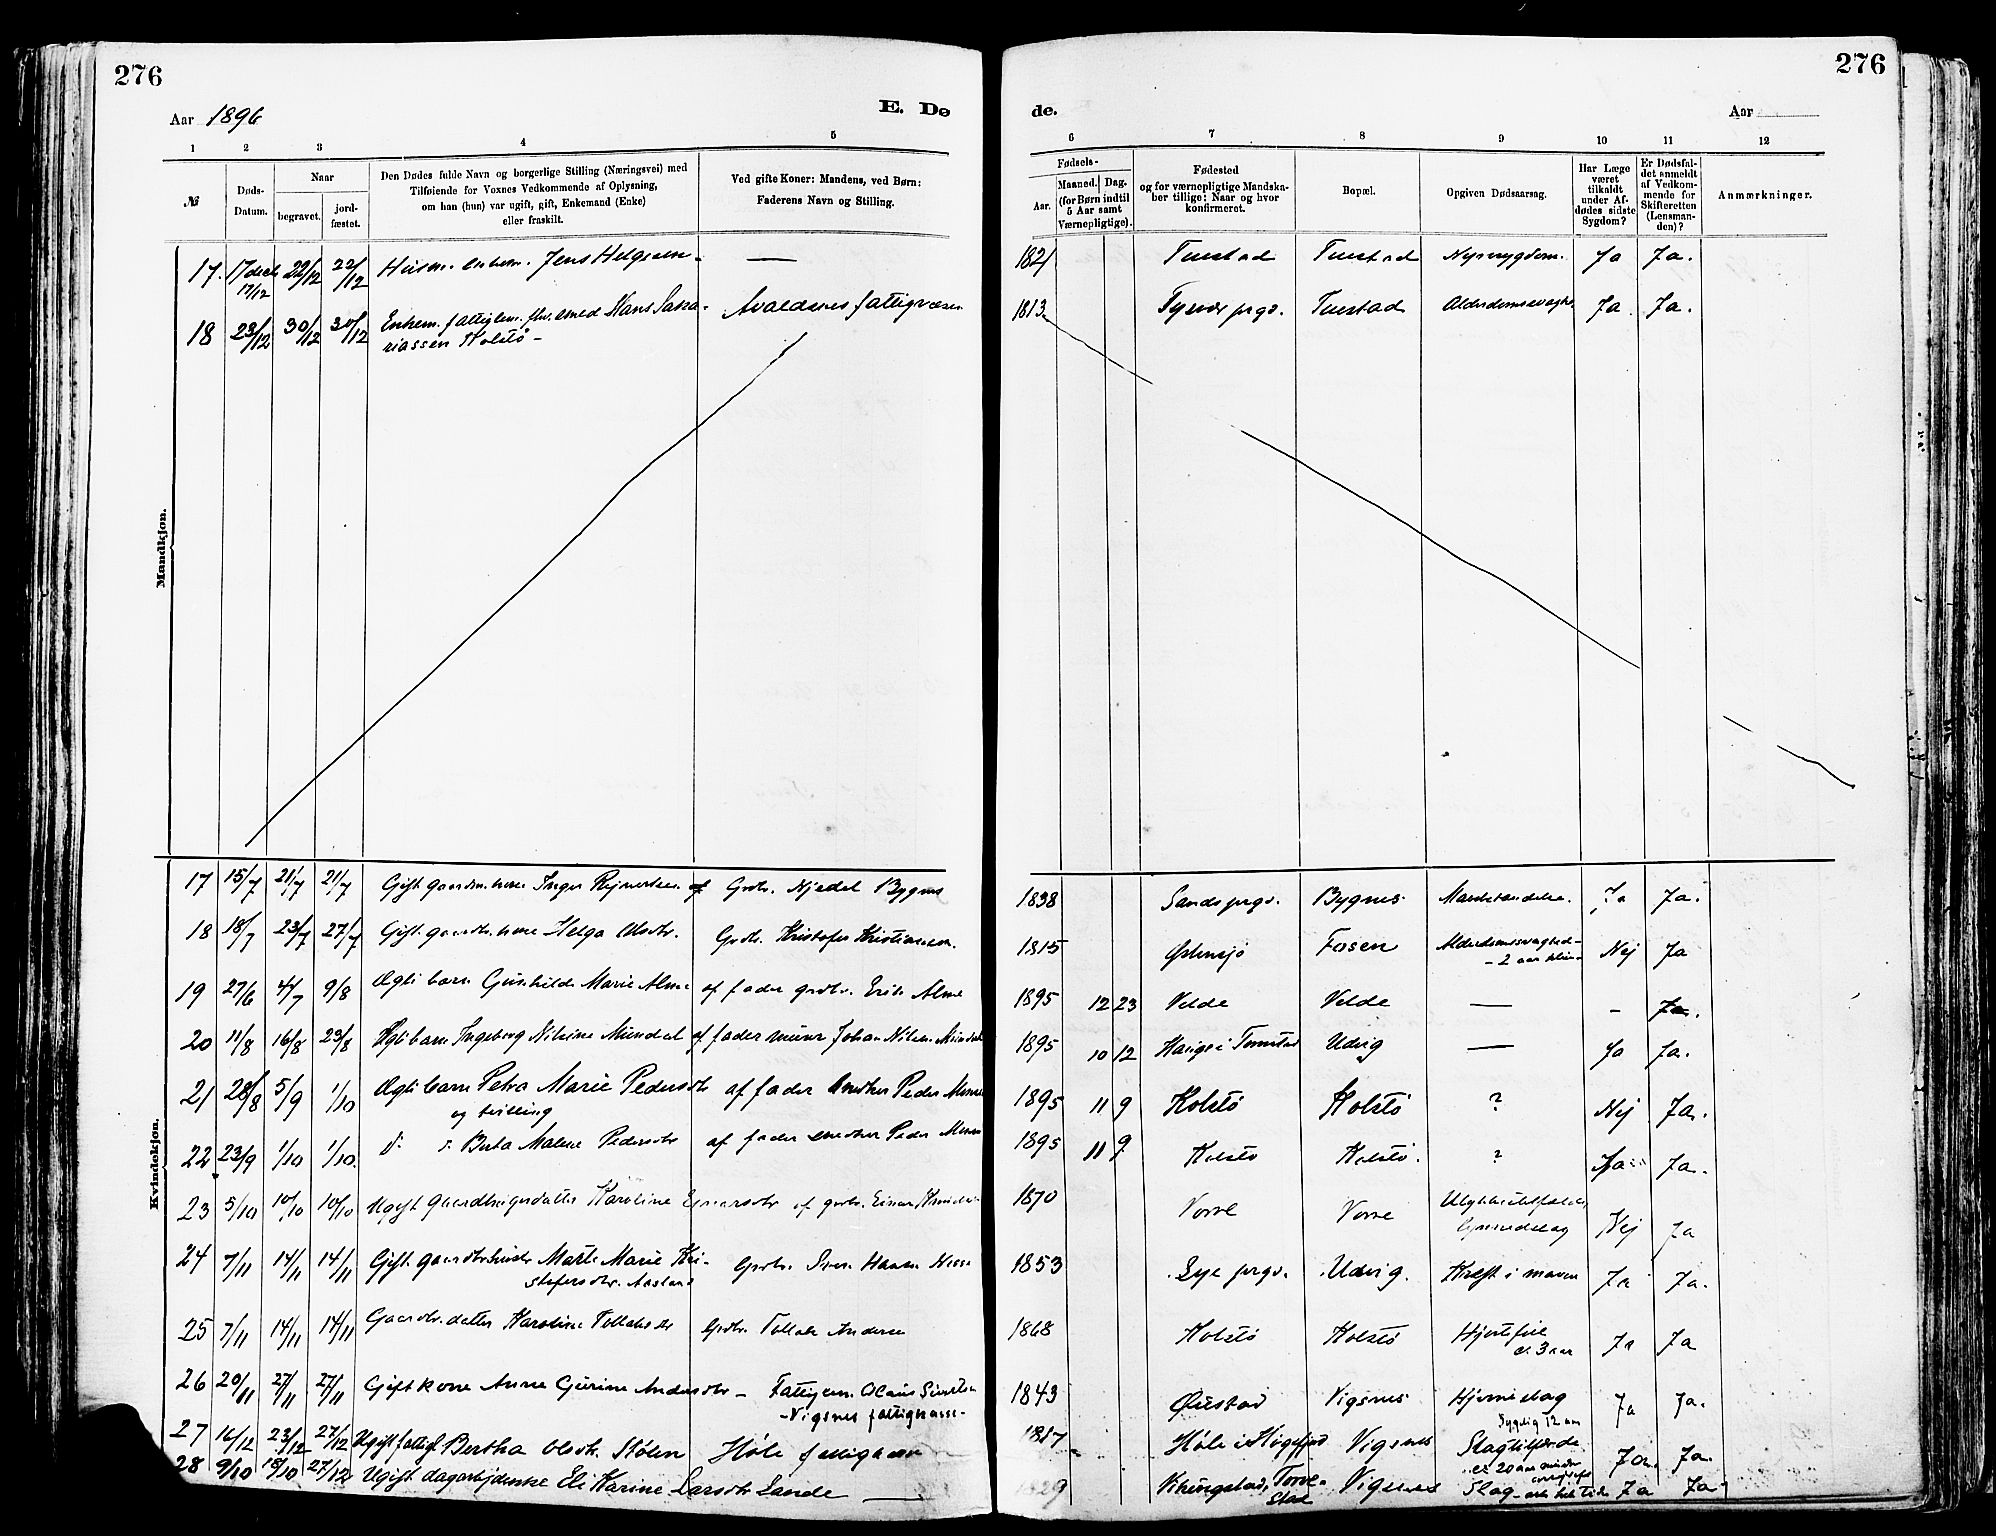 276
276
Aar 1896
E. Dø
de.
Aar
1 2 3 4 5 6 7 8 9 10 11 12
№
Døds-
Datum.
Naar
begravet.
jord-
fæstet.
Den Dødes fulde Navn og borgerlige Stilling (Næringsvei) med
Tilføiende for Voxnes Vedkommende af Oplysning,
om han (hun) var ugift, gift, Enkemand (Enke)
eller fraskilt.
Ved gifte Koner: Mandens, ved Børn:
Faderens Navn og Stilling.
Fødsels-
Aar.
Maaned. Dag.
(for Børn indtil
5 Aar samt
Værnepligtige).
Fødested
og for værnepligtige Mandska-
ber tillige: Naar og hvor
konfirmeret.
Bopæl.
Opgiven Dødsaarsag.
Har Læge
været
tilkaldt
under Af-
dødes sidste
Sygdom?
Er Dødsfal-
det anmeldt
af Vedkom-
mende for
Skifteretten
(Lensman-
den)?
Anmærkninger.
Mandkjøn.
17. 17 dech 17/12 22/12 22/12 Husm. enkem. Jens Helgesen — 1821 Tuestad Tuestad Nyresygdom. Ja Ja.
18 23/12 30/12 30/12 Enkem. fattiglem. fhv. smed Hans Saka- Avaldsnes fattigvæsen 1813 Tysvær prgd. Tuestad Alderdomssvaghed Ja. Ja.
riassen Kolstø -
Kvindekjøn.
17 15/7 21/7 21/7 Gift gaardm. kone Inger Rejnertsen af Grdbr. Njædel Bygnes 1838 Sands prgd. Bygnes Ja Ja.
18 18/7 23/7 27/7 Gift gaardbr. kone Helga Olsdtr. Grdbr. Kristofer Kristiansen. 1815 Østensjø Fosen Alderdomssvaghed - Nej Ja
- 2 aar
19 27/6 4/7 9/8 Ægte barn Gunhilde Marie Alme af fader grdbr. Erik Alme 1895 12 23 Velde Velde — - Ja.
20 11/8 16/8 23/8 Ægte barn Ingeborg Nilsine Mundal af fader murer Johan Nilsen Mundal 1895 10 12 Hauge i Udvig — Ja Ja.
21 28/8 5/9 1/10 Ægte barn Petra Marie Pedersdtr af fader Peder 1895 11 9 Kolstø Kolstø ? Nej Ja.
og tvilling
22 23/9 1/10 1/10. Berta Malene Pedersdtr af fader Peder 1895 11 9 Kolstø Kolstø. ? Ja Ja.
23 5/10 10/10 10/10 Ugift gaardbrugerdatter Karoline Einarsdtr af grdbr. Einar 1870 Vorre Vorre Nej Ja
24 7/11 14/11 14/11 Gift Marte Marie Kri- Grdbr. Hansen 1853 Lye prgd. Udvig. Kræft i maven Ja Ja.
stofersdtr. Aasland
25 7/11 14/11 14/11 Gaardbr. datter Karoline Tollaksdtr Grdbr. Tollak Andersen 1868 Kolstø Kolstø Hjertefeil Ja Ja
c. 3 aar
26 20/11 27/11 27/11 Gift kone Anne Gurine Andersdtr - Fattiglem. 1843 Øiestad Vigsnes Hjerneslag Ja Ja.
- Vigsnes fattigkasse - Sygelig 12 aar
27 16/12 23/12 27/12 Ugift fattigl. Bertha Olsdtr. Stølen Høle fattigkasse 1817 Høle i Høgsfjord Vigsnes Slagtilfælde. Ja. Ja.
28 9/10 18/10 27/12 Ugift dagarbejderske Eli Karine Larsdtr Lande — 29 Vikingstad, Torve- Vigsnes Slag Ja Ja.
stad